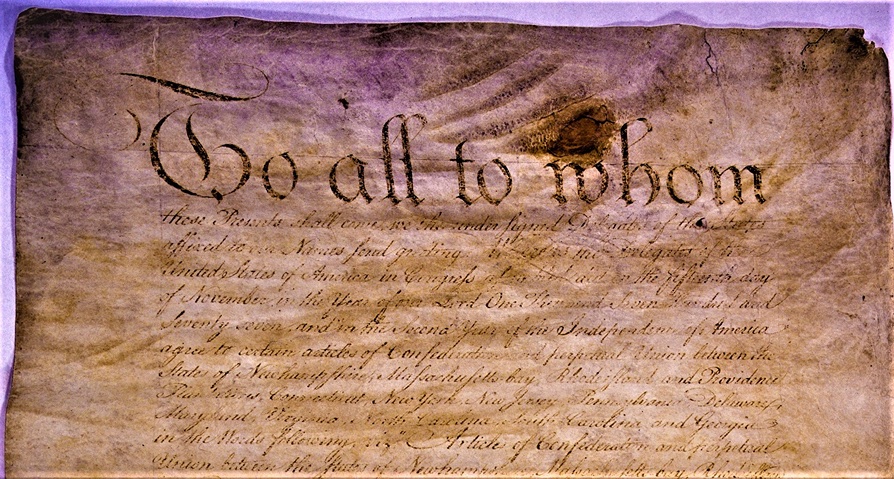 To all to whom
these Presents shall come, we the under signed Delegates of the States
affixed to our Names send greeting. Whereas the Delegates of the
United States of America in Congress assembled did on the fifteenth day
of November in the Year of our Lord One Thousand Seven Hundred and
Seventy seven, and in the Second Year of the Independence of America
agree to certain articles of Confederation and perpetual Union between the
States of Newhampshire, Massachusetts-bay, Rhodeisland and Providence
Plantations, Connecticut, New York, New Jersey, Pennsylvania, Delaware,
Maryland, Virginia, North Carolina, South Carolina, and Georgia
in the Words following, viz. Articles of Confederation and perpetual
Union between the States of Newhampshire, Massachusetts-bay, Rhodeisland